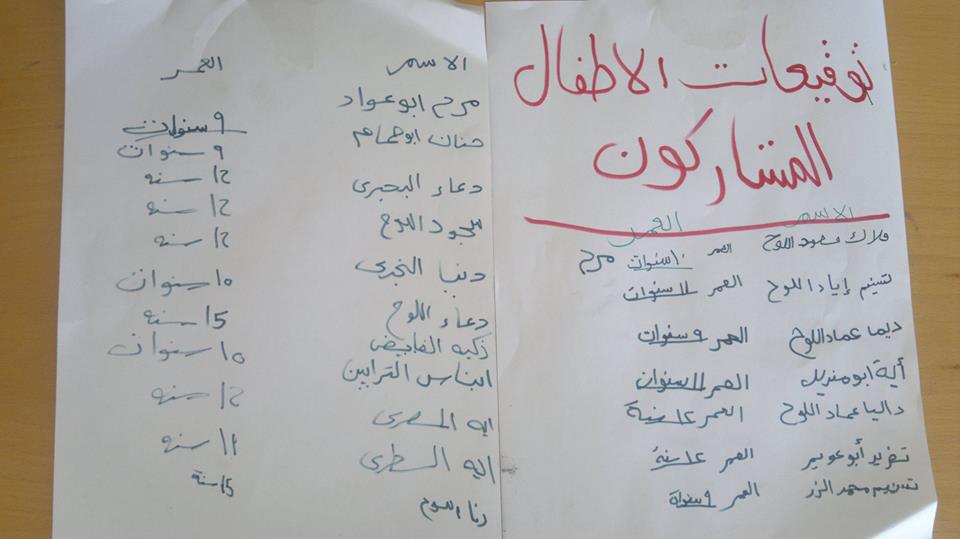 توقيعات الاطفال
المشاركون
الاسم العمر
ملاك مسعود اللوح العمر ١٠ سنوات مرح
تسنيم إياد اللوح العمر 11 سنوات
ديما عماد اللوح العمر ٩ سنوات
أية ابو منديل العمر 11 سنوات
داليا عماد اللوح العمر ١٢ سنة
تغريد أبو عويمر العمر ١٢ سنة
تسنيم محمد الزر العمر ٩ سنوات
الاسم العمر
مرح ابو عواد 9 سنوات
حنان ابو همام 9 سنوات
دعاء البحيري 12 سنه
سجود اللوح 12 سنه
دينا 12 سنه
دعاء اللوح 10 سنوات
زكيه 15 سنه
ايناس الترابين 10 سنوات
ايه المصري 12 سنه
اليه السطري 11 سنه
رنا اللوح 15 سنة